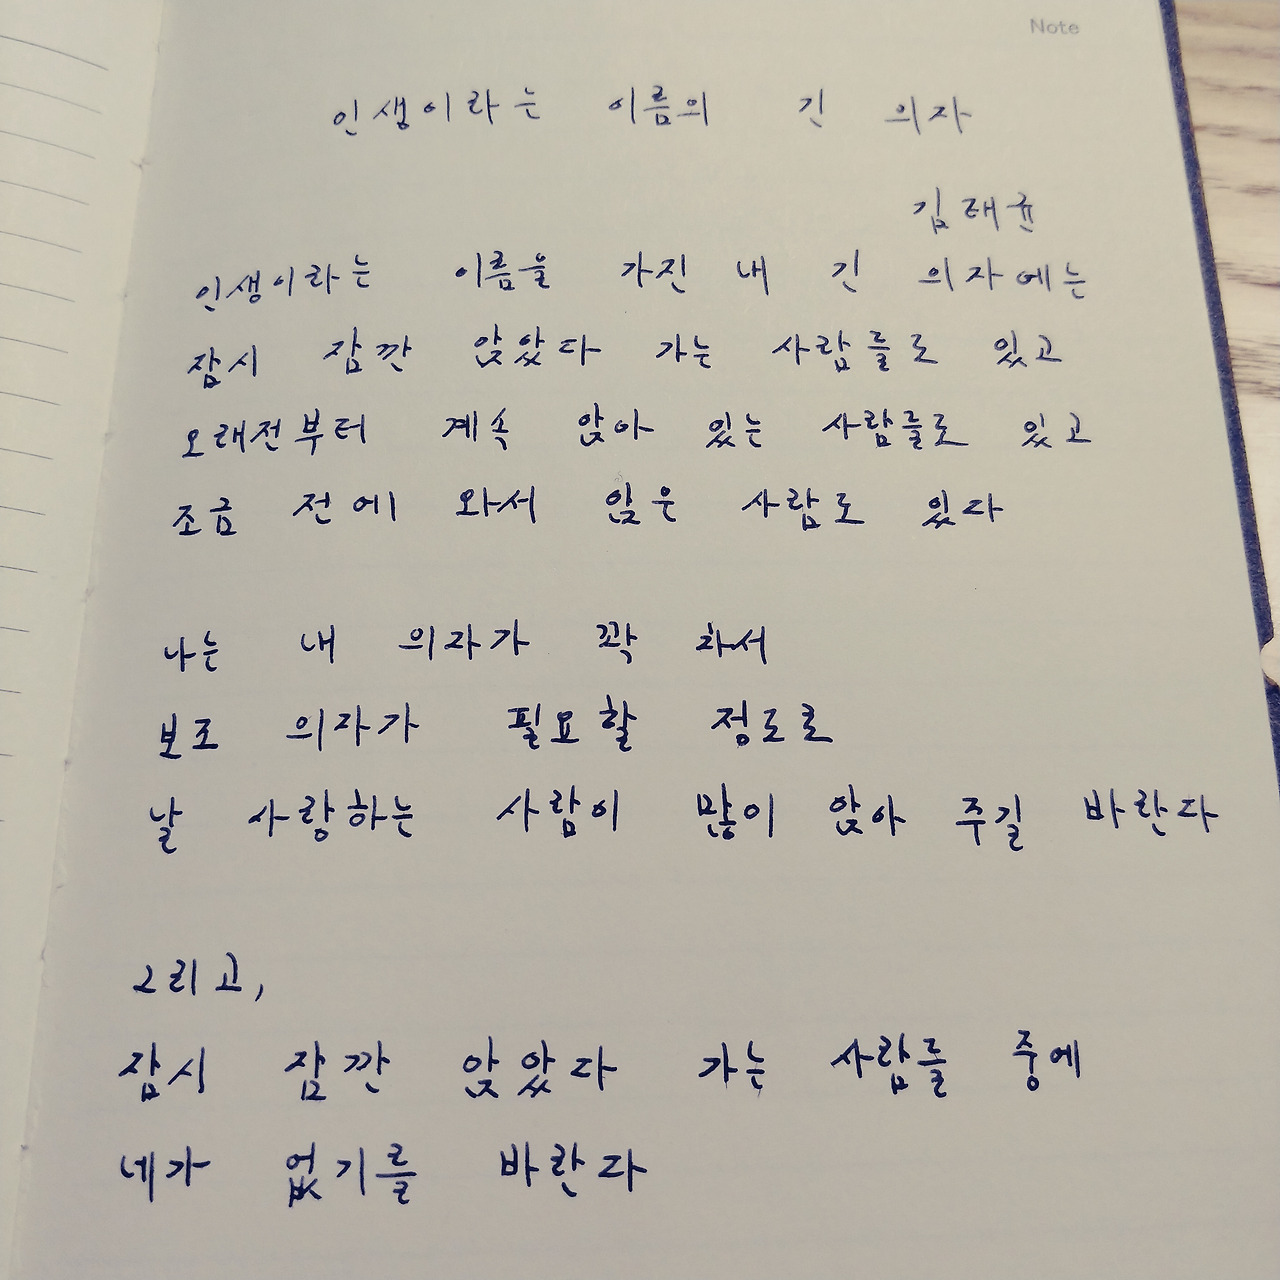 Note
인생이라는 이름의 긴 의자
김태균
인생이라는 이름을 가진 내 긴 의자에는
잠시 잠깐 앉았다 가는 사람들로 있고
오래전부터 계속 앉아 있는 사람들로 있고
조금 전에 와서 앉은 사람도 있다
나는 내 의자가 꽉 차서
보조 의자가 필요할 정도로
날 사랑하는 사람이 많이 앉아 주길 바란다
그리고,
잠시 잠깐 앉았다 가는 사람들 중에
네가 없기를 바란다